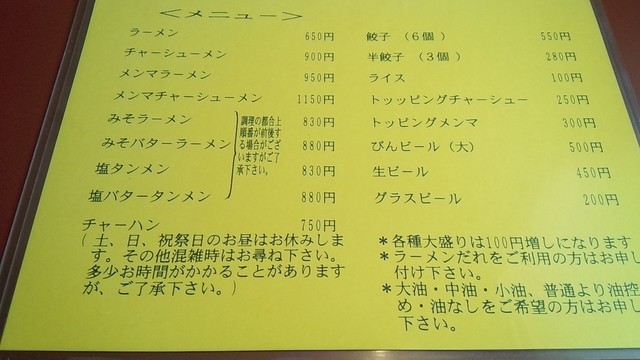 ＜メニュー＞
ラーメン 650円
チャーシューメン 900円
メンマラーメン 950円
メンマチャーシューメン 1150円
みそラーメン 830円
みそバターラーメン 880円
塩タンメン 830円
塩バタータンメン 880円
調理の都合上
順番が前後す
る場合がござ
いますがご了
承下さい。
チャーハン 750円
(土、日、祝祭日のお昼はお休みしま
す。その他混雑時はお尋ね下さい。
多少お時間がかかることがあります
が、ご了承下さい。)
餃子（6個） 550円
半餃子（3個） 280円
ライス 100円
トッッピングチャーシュー 250円
トッピングメンマ 300円
びんビール（大） 500円
生ビール 450円
グラスビール 200円
＊各種大盛りは100円増しになります
＊ラーメンだれをご利用の方はお申し
付け下さい。
＊大油・中油・小油、普通より油控
め・油なしをご希望の方はお申し
下さい。